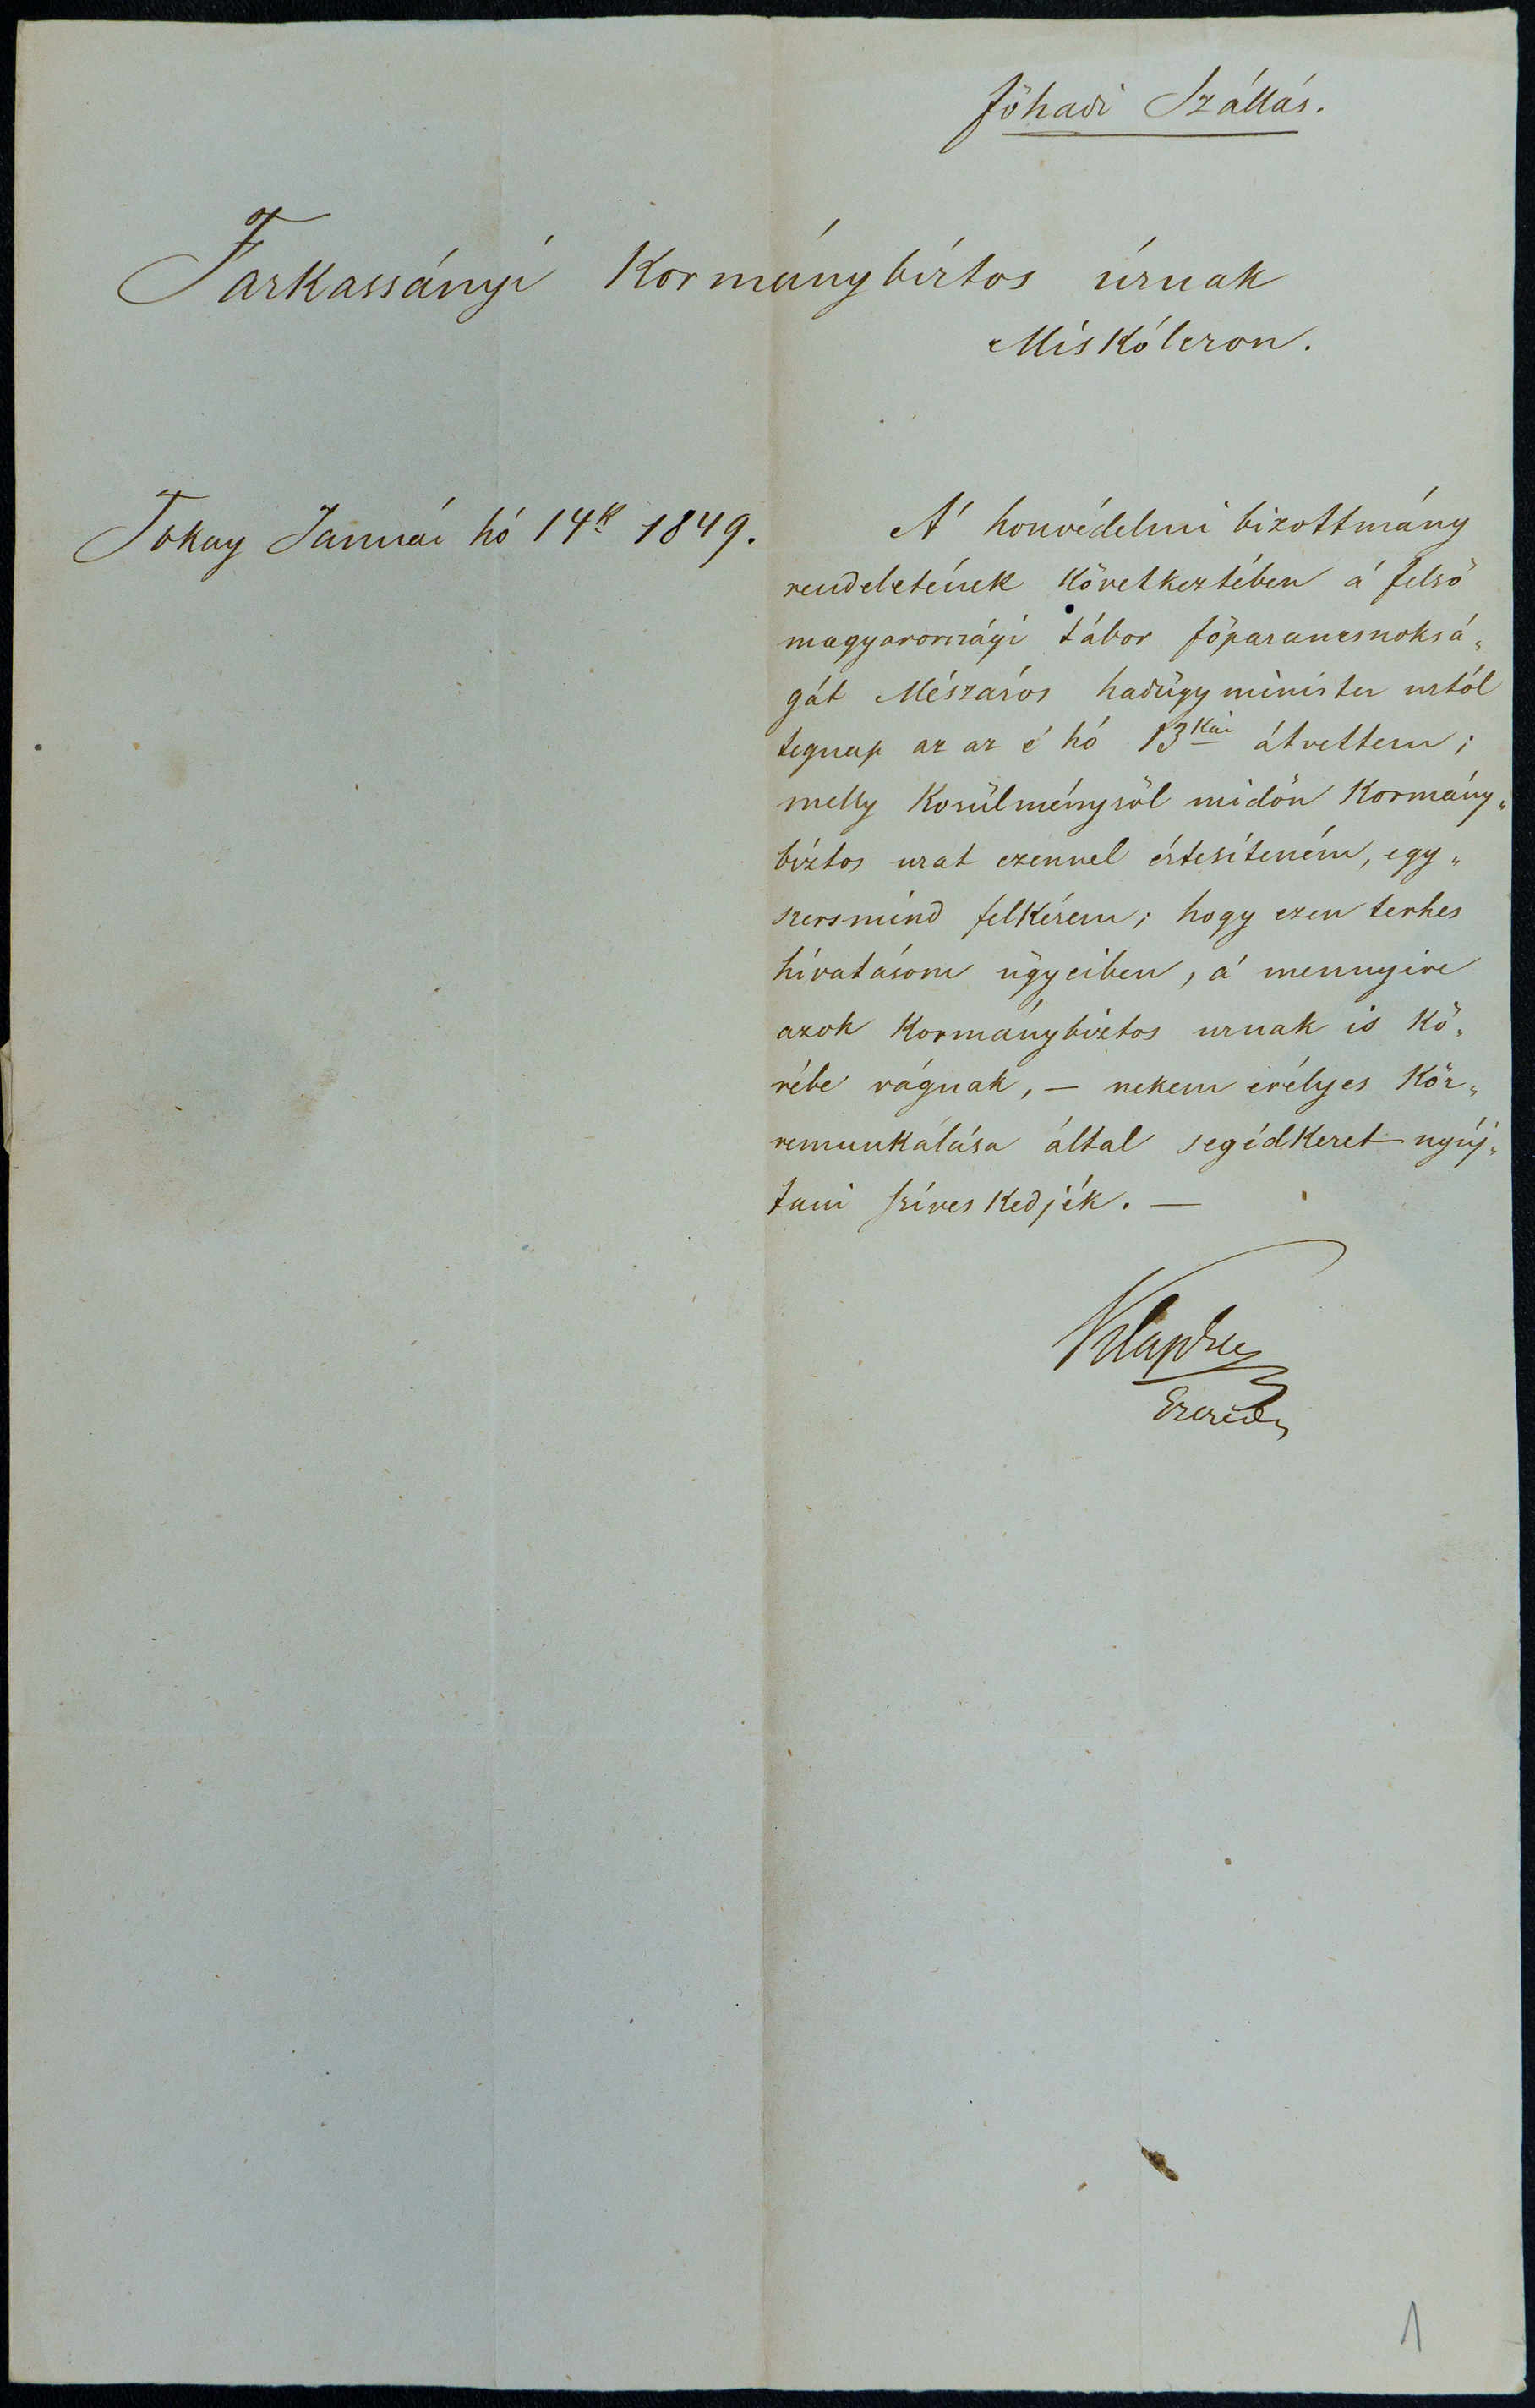 Főhadi Szállás.
Farkassányi Kormánybirtos úrnak
Miskólczon.
Tokay Januái hó 14k 1849.
A' honvédelmi bizottmány
rendeletének következtében a' felső
magyarországi tábor főparancsnoksá„
gát Mészáros hadügyminister urtól
tegnap az az é hó 13kán átvettem;
melly körülményről midőn Kormány„
biztos urat ezennel értesíteném, egy„
szersmind felkérem; hogy ezen terhes
hivatásom ügyeiben, a' mennyire
azok Kormánybiztos urnak is kö„
rébe vágnak, — nekem erélyes köz„
remunkálása által segédkezet nyúj„
tani szíveskedjék. —
Klapka
Ezredes
1